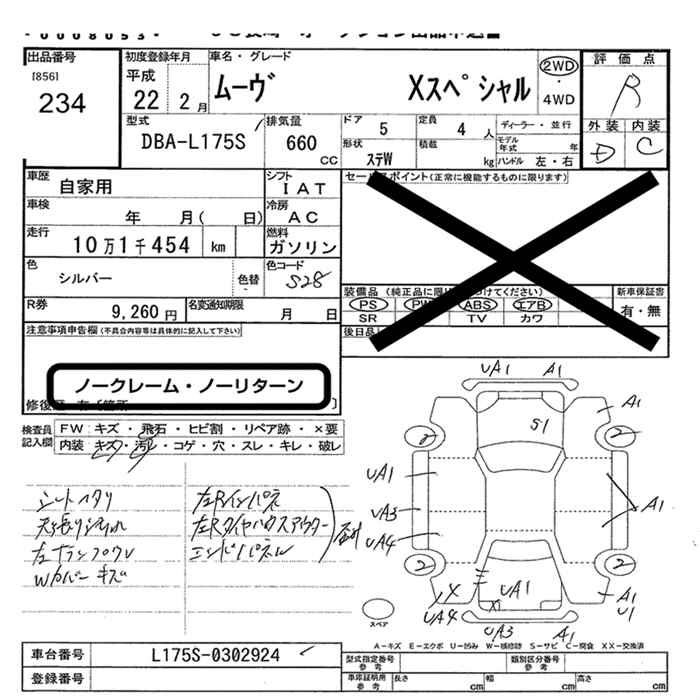 00008053
出品番号
[856]
234
初度登録年月
平成
22 2月
車名・グレード
ムーヴ Xスペシャル
2WD
・
4WD
評価点
R
外装 内装
D C
型式
DBA-L175S
排気量
660
CC
ドア 5
定員 4人
ディーラー・並行
モデル年式 年
形状 ステW
積載 kg
ハンドル 左・右
車歴
自家用
シフト
IAT
車検
年 月( 日)
冷房
AC
走行
10万1千454 km
燃料
ガソリン
色
シルバー
色替
色コード
S28
R券
9,260円
名変通知期限
月 日
セールスポイント(正常に機能するものに限ります)
装備品
PS PW ABS エアB
SR TV カワ
後日品
新車保証書
有・無
注意事項申告欄(不具合内容等は具体的に記入して下さい)
ノークレーム・ノーリターン
検査員記入欄
FW キズ・飛石・ヒビ割・リペア跡・×要
内装 キズ・汚レ・コゲ・穴・スレ・キレ・破レ
シートヘタリ
Wカバーキズ
左Rインパネ
エンドパネル
UA1 A1
S1
A1
2 2
UA1
UA3
UA4
A1
2 2
UA1
UA4
A1
U1
UA3 A1
スペア
A-キズ E-エクボ U-凹み W-補修跡 S-サビ C-腐食 XX-交換済
車台番号
L175S-0302924
登録番号
型式指定番号
参考
類別区分番号
参考
車庫証明用
参考
長さ cm
幅 cm
高さ cm